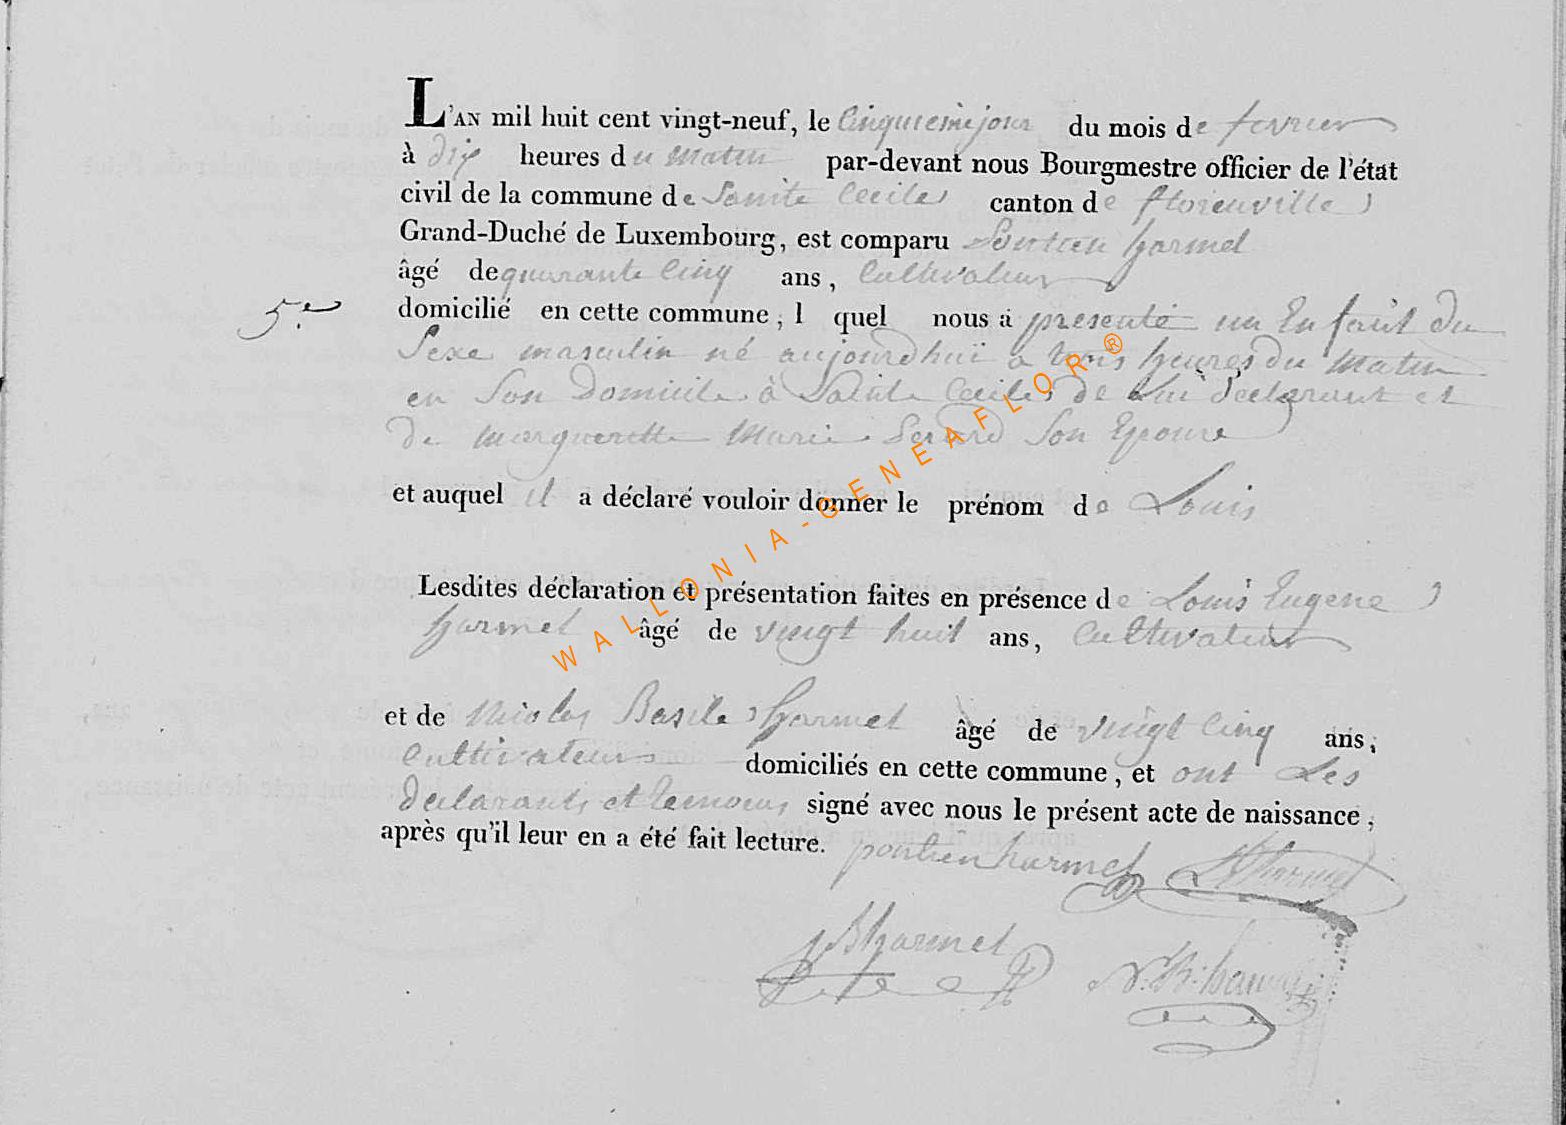 L'AN mil huit cent vingt-neuf, le Cinquieme jour du mois de fevrier
à dix heures du matin par-devant nous Bourgmestre officier de l'état
civil de la commune de Sainte Cecile canton de florenville
Grand-Duché de Luxembourg, est comparu Pontien harmel
âgé de quarante Cinq ans, Cultivateur
5.e domicilié en cette commune, l quel nous a presenté un Enfant du
Sexe masculin né aujourdhuï a trois heures du Matin
en Son Domicile à Sainte Cecile de Lui declarant et
de marguerite Marie Gerard Son Epouse
et auquel il a déclaré vouloir donner le prénom de Louis
Lesdites déclaration et présentation faites en présence de Louis Eugene
harmel âgé de vingt huit ans, Cultivateur
et de Nicolas Basile harmel âgé de vingt Cinq ans,
Cultivateurs domiciliés en cette commune, et ont Les
declarants et temoins signé avec nous le présent acte de naissance,
après qu'il leur en a été fait lecture. pontien harmel
harmel
N. B. harmel
WALLONIA-GENEAFLOR®